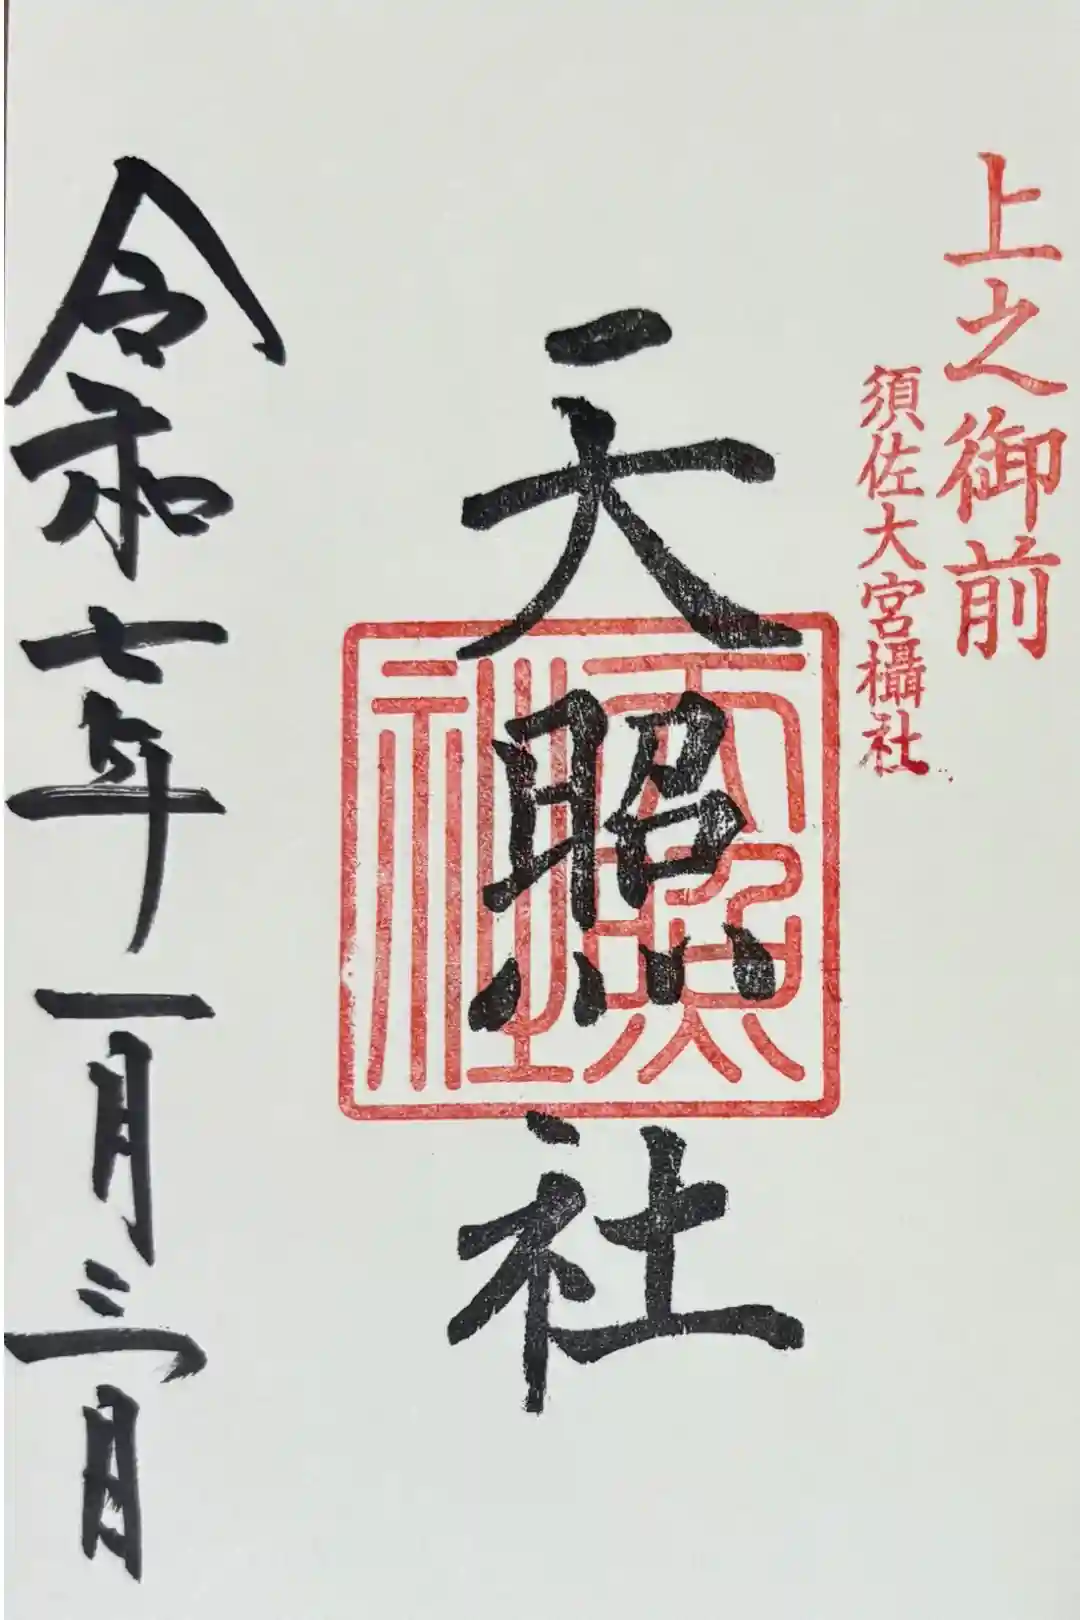 上之御前
須佐大宮攝社
天照社
天照社
令和七年一月三日